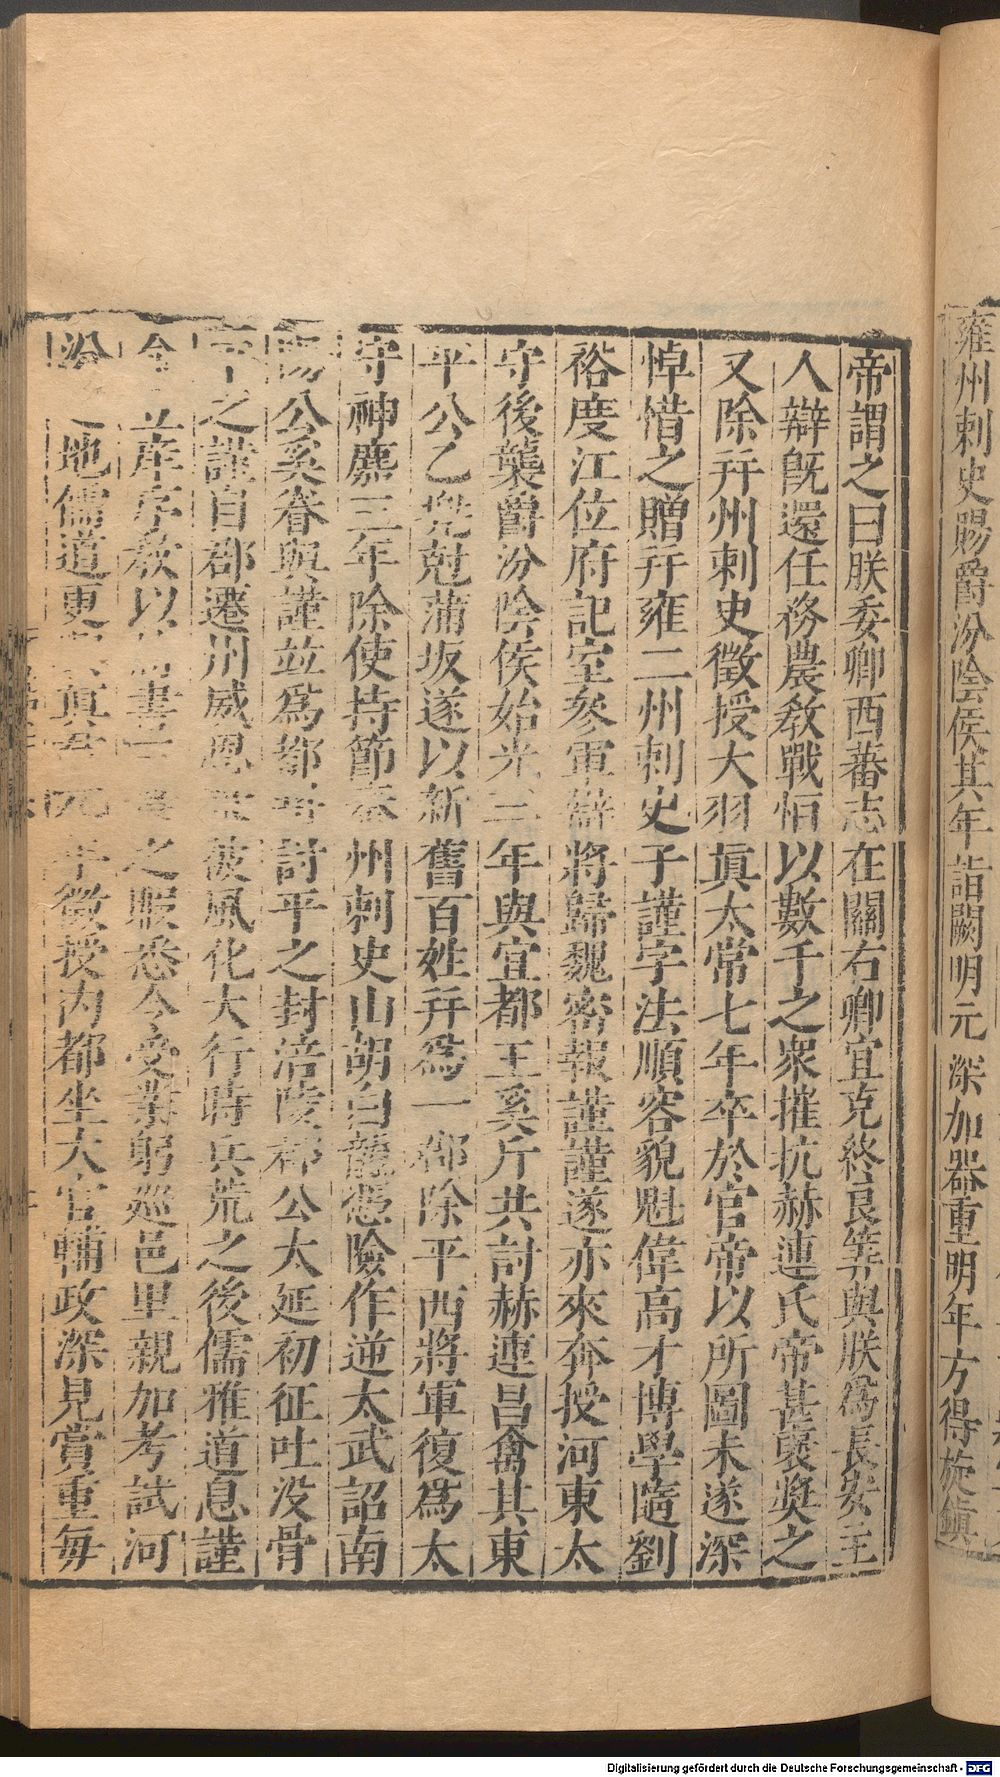 雍州刺史賜爵汾陰侯其年詣闕明元深加器重明年方得旋鎮
帝謂之曰朕委卿西蕃志在關右卿宜克終良筭與朕爲長安主
人辯旣還任務農敎戰恒以數千之衆摧抗赫連氏帝甚襃奬之
又除幷州刺史徵授大羽眞太常七年卒於官帝以所圖未遂深
悼惜之贈幷雍二州刺史子謹字法順容貌魁偉高才博學隨劉
裕度江位府記室參軍辯將歸魏密報謹謹遂亦來奔授河東太
守後襲爵汾陰侯始光三年與宜都王奚斤共討赫連昌禽其東
平公乙兠尅蒲坂遂以新舊百姓幷爲一郡除平西將軍復爲太
守神䴥三年除使持節秦州刺史山胡白龍憑險作逆太武詔南
陽公奚眷與謹並爲都將討平之封涪陵郡公太延初征吐没骨
平之謹自郡遷州威恩被風化大行時兵荒之後儒雅道息謹
命立庠序敎以書之暇悉令受業躬巡邑里親加考試河
汾之地儒道更眞君元年徵授内都坐大官輔政深見賞重每
Digitalisierung gefördert durch die Deutsche Forschungsgemeinschaft - DFG